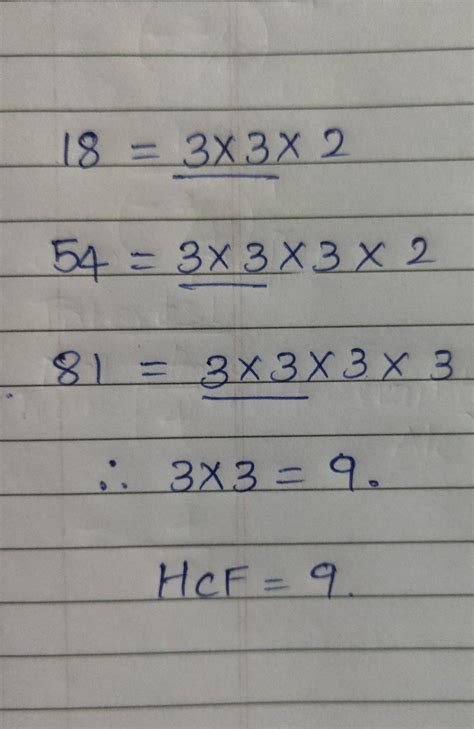 18 = 3×3×2
54 = 3×3×3×2
81 = 3×3×3×3
∴ 3×3 = 9.
HCF = 9.